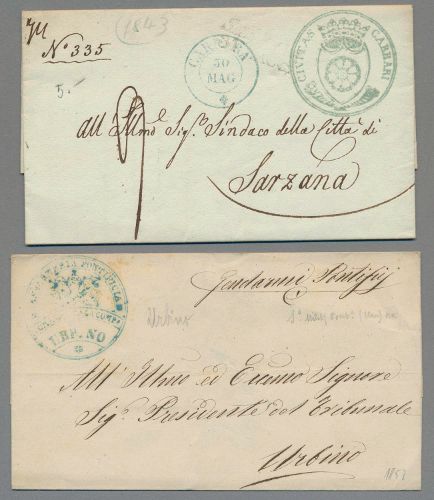 (1843)
N.° 335
5.-
CARRARA
30
MAG
CIVITAS CARRARI
All' Illmo Sig.r Sindaco della Città di
Sarzana
GENDARMERIA PONTIFICIA
URBINO
Gendarmi Pontificj
Urbino
All' Illmo ed Eccmo Signore
Sig.r Presidente del Tribunale
Urbino